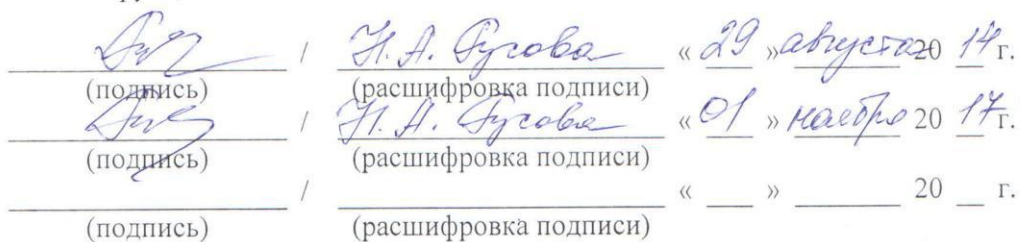 / Н. А. Гусова « 29 » августа 20 14 г.
(подпись) (расшифровка подписи)
/ Н. А. Гусова « 01 » ноября 20 17 г.
(подпись) (расшифровка подписи)
/ « » 20 г.
(подпись) (расшифровка подписи)